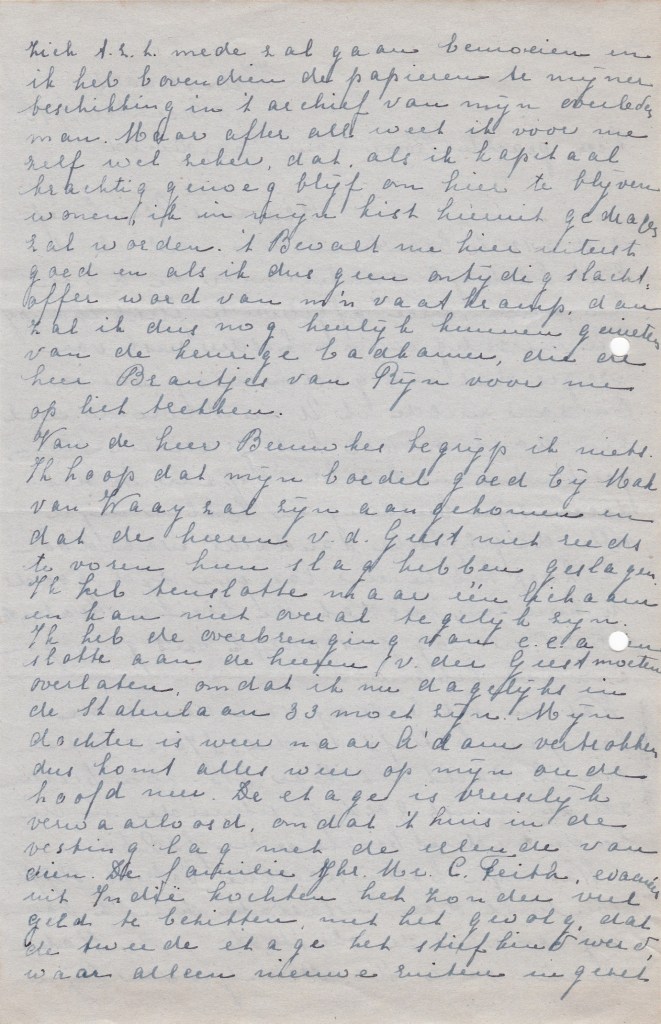 zich t.z.t. mede zal gaan bemoeien en
ik heb bovendien de papieren te mijner
beschikking in 't archief van mijn overleden
man. Maar after all weet ik voor me
zelf wel zeker, dat, als ik kapitaal
krachtig genoeg blijf om hier te blijven
wonen, ik in mijn kist hieruit gedragen
zal worden. 't Bevalt me hier uiterst
goed en als ik dus geen ontijdig slacht-
offer word van m'n vaatkramp, dan
zal ik dus nog heerlijk kunnen genieten
van de keurige badkamer, die de
heer Brantjes van Rijn voor me
op liet trekken.
Van de heer Beeuwkes begrijp ik niets.
Ik hoop dat mijn boedel goed bij Mak
van Waay zal zijn aangekomen en
dat de heeren v.d. Geest niet reeds
te voren hun slag hebben geslagen.
Ik heb tenslotte maar één lichaam
en kan niet overal tegelijk zijn.
Ik heb de overbrenging van e.e.a. ten
slotte aan de heeren v. der Geest moeten
overlaten, omdat ik nu dagelijks in
de Statenlaan 33 moet zijn. Mijn
dochter is weer naar A'dam vertrokken
dus komt alles weer op mijn oude
hoofd neer. De etage is vreeselijk
verwaarloosd, omdat 't huis in de
vesting lag met de ellende van
dien. De familie Jhr. Mr. C. Feith, evacués
uit Indië kochten het zonder veel
geld te bezitten, met het gevolg, dat
de tweede etage het stiefkind werd,
waar alleen nieuwe ruiten in gezet